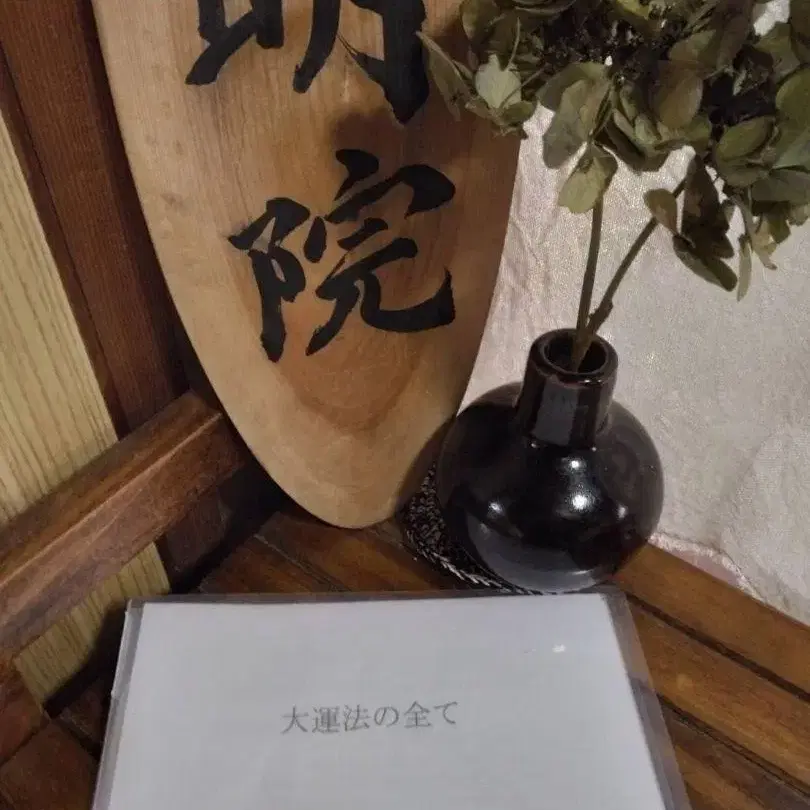 明
院
大運法の全て